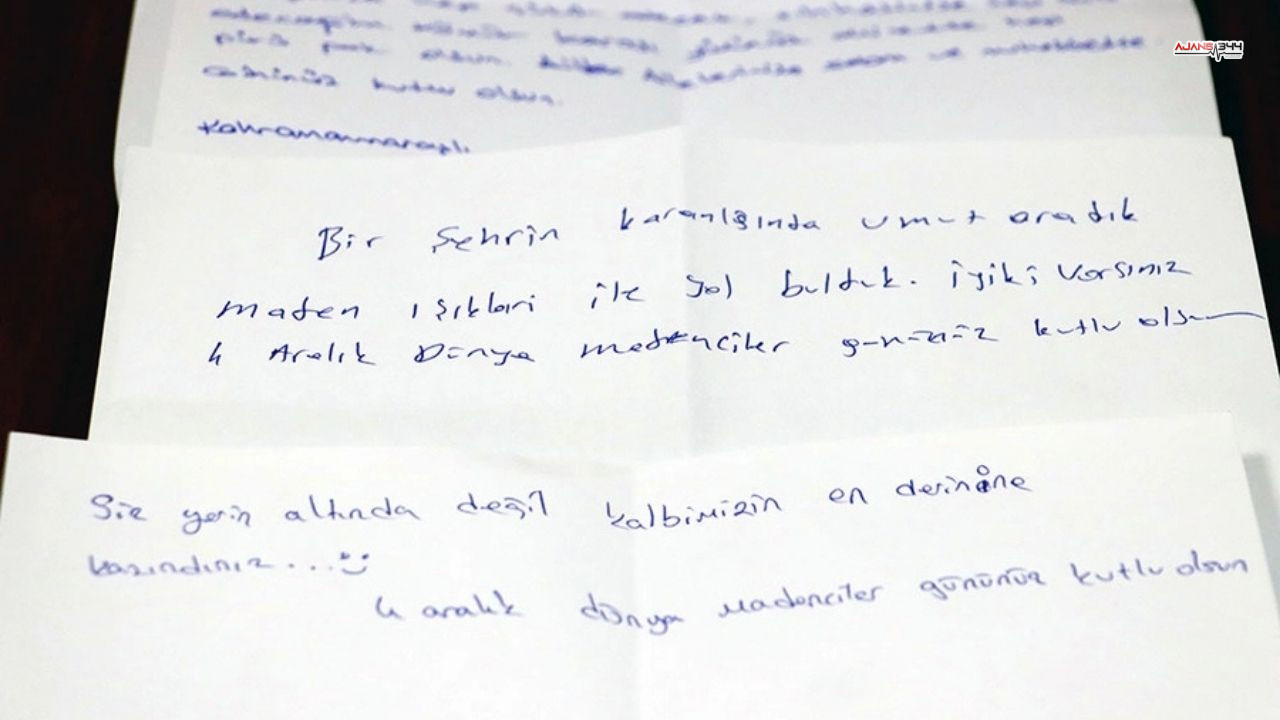 AJANS 344
günümüz
ailelerinizle
gününüz kutlu olsun.
Kahramanmaraşlı
Bir Şehrin karanlığında umut aradık
maden ışıkları ile yol bulduk. iyiki varsınız
4 Aralık Dünya madenciler gününüz kutlu olsun
Siz yerin altında değil kalbimizin en derinine
kazındınız... :)
4 aralık dünya Madenciler gününüz kutlu olsun